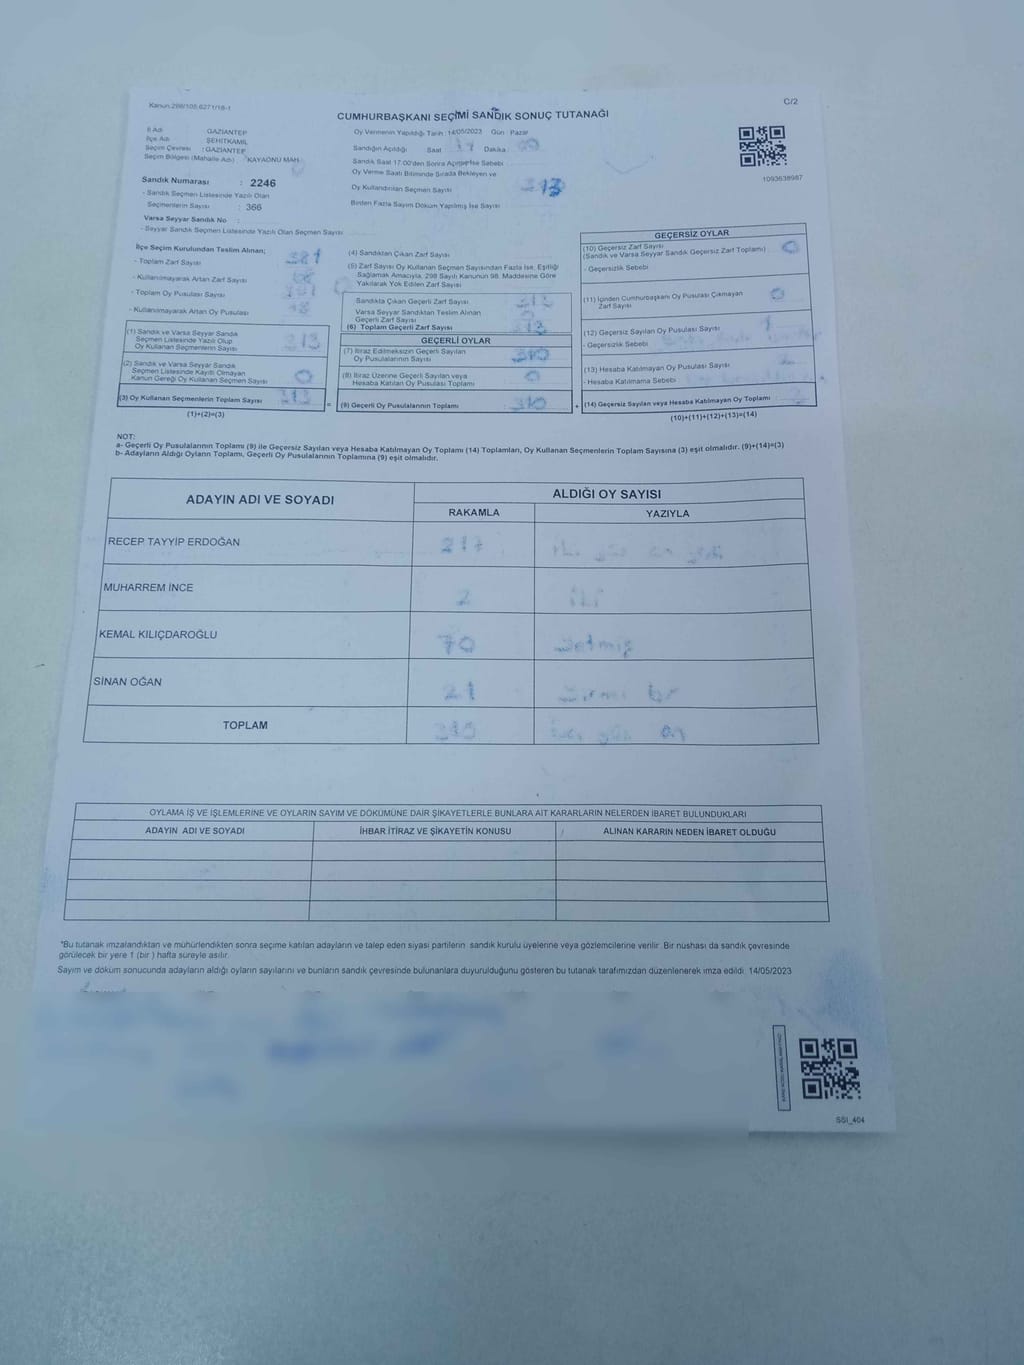 Kanun:298/105,6271/18-1
C/2
CUMHURBAŞKANI SEÇİMİ SANDIK SONUÇ TUTANAĞI
İl Adı : GAZİANTEP
İlçe Adı : ŞEHİTKAMİL
Seçim Çevresi : GAZİANTEP
Seçim Bölgesi (Mahalle Adı) : KAYAÖNÜ MAH.
Sandık Numarası : 2246
- Sandık Seçmen Listesinde Yazılı Olan
Seçmenlerin Sayısı : 366
Varsa Seyyar Sandık No :
- Seyyar Sandık Seçmen Listesinde Yazılı Olan Seçmen Sayısı :
Oy Vermenin Yapıldığı Tarih : 14/05/2023 Gün : Pazar
Sandığın Açıldığı Saat 17 Dakika 00
Sandık Saat 17:00'den Sonra Açılmış İse Sebebi
Oy Verme Saati Bitiminde Sırada Bekleyen ve
Oy Kullandırılan Seçmen Sayısı 313
Birden Fazla Sayım Döküm Yapılmış İse Sayısı
1093638987
İlçe Seçim Kurulundan Teslim Alınan;
- Toplam Zarf Sayısı : 381
- Kullanılmayarak Artan Zarf Sayısı :
- Toplam Oy Pusulası Sayısı :
- Kullanılmayarak Artan Oy Pusulası Sayısı :
(1) Sandık ve Varsa Seyyar Sandık
Seçmen Listesinde Yazılı Olup
Oy Kullanan Seçmenlerin Sayısı : 313
(2) Sandık ve Varsa Seyyar Sandık
Seçmen Listesinde Kayıtlı Olmayan
Kanun Gereği Oy Kullanan Seçmen Sayısı : 0
(3) Oy Kullanan Seçmenlerin Toplam Sayısı : 313
(1)+(2)=(3)
(4) Sandıktan Çıkan Zarf Sayısı
(5) Zarf Sayısı Oy Kullanan Seçmen Sayısından Fazla İse, Eşitliği
Sağlamak Amacıyla, 298 Sayılı Kanunun 98. Maddesine Göre
Yakılarak Yok Edilen Zarf Sayısı
Sandıkta Çıkan Geçerli Zarf Sayısı : 313
Varsa Seyyar Sandıktan Teslim Alınan
Geçerli Zarf Sayısı
(6) Toplam Geçerli Zarf Sayısı : 313
GEÇERLİ OYLAR
(7) İtiraz Edilmeksizin Geçerli Sayılan
Oy Pusulalarının Sayısı : 310
(8) İtiraz Üzerine Geçerli Sayılan veya
Hesaba Katılan Oy Pusulası Toplamı : 0
(9) Geçerli Oy Pusulalarının Toplamı : 310
GEÇERSİZ OYLAR
(10) Geçersiz Zarf Sayısı
(Sandık ve Varsa Seyyar Sandık Geçersiz Zarf Toplamı) : 0
- Geçersizlik Sebebi :
(11) İçinden Cumhurbaşkanı Oy Pusulası Çıkmayan
Zarf Sayısı : 0
(12) Geçersiz Sayılan Oy Pusulası Sayısı : 1
- Geçersizlik Sebebi :
(13) Hesaba Katılmayan Oy Pusulası Sayısı :
- Hesaba Katılmama Sebebi :
(14) Geçersiz Sayılan veya Hesaba Katılmayan Oy Toplamı :
(10)+(11)+(12)+(13)=(14)
NOT:
a- Geçerli Oy Pusulalarının Toplamı (9) ile Geçersiz Sayılan veya Hesaba Katılmayan Oy Toplamı (14) Toplamları, Oy Kullanan Seçmenlerin Toplam Sayısına (3) eşit olmalıdır. (9)+(14)=(3)
b- Adayların Aldığı Oyların Toplamı, Geçerli Oy Pusulalarının Toplamına (9) eşit olmalıdır.
ADAYIN ADI VE SOYADI
ALDIĞI OY SAYISI
RAKAMLA YAZIYLA
RECEP TAYYİP ERDOĞAN 217 iki yüz on yedi
MUHARREM İNCE 2 iki
KEMAL KILIÇDAROĞLU 70 yetmiş
SİNAN OĞAN 21 yirmi bir
TOPLAM 310 üç yüz on
OYLAMA İŞ VE İŞLEMLERİNE VE OYLARIN SAYIM VE DÖKÜMÜNE DAİR ŞİKAYETLERLE BUNLARA AİT KARARLARIN NELERDEN İBARET BULUNDUKLARI
ADAYIN ADI VE SOYADI İHBAR İTİRAZ VE ŞİKAYETİN KONUSU ALINAN KARARIN NEDEN İBARET OLDUĞU
*Bu tutanak imzalandıktan ve mühürlendikten sonra seçime katılan adayların ve talep eden siyasi partilerin sandık kurulu üyelerine veya gözlemcilerine verilir. Bir nüshası da sandık çevresinde
görülecek bir yere 1 (bir) hafta süreyle asılır.
Sayım ve döküm sonucunda adayların aldığı oyların sayılarını ve bunların sandık çevresinde bulunanlara duyurulduğunu gösteren bu tutanak tarafımızdan düzenlenerek imza edildi. 14/05/2023
SSI_404